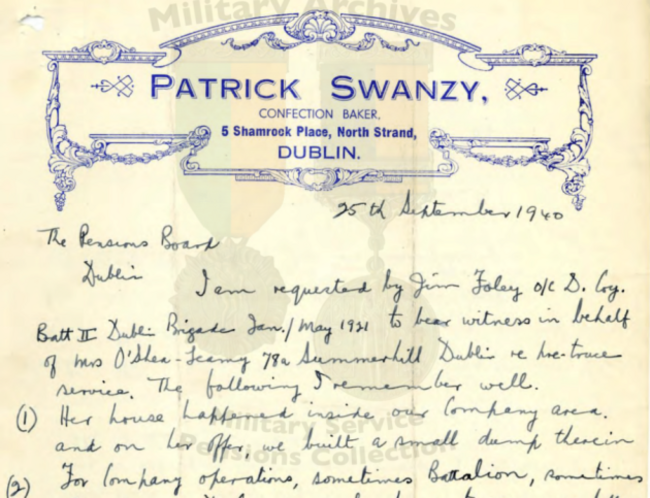 Military Archives
PATRICK SWANZY,
CONFECTION BAKER,
5 Shamrock Place, North Strand,
DUBLIN.
25th September 1940
The Pensions Board
Dublin
I am requested by Jim Foley o/c D. Coy.
Batt II Dublin Brigade Jan./May 1921 to bear witness in behalf
of Mrs O'Shea-Leamy 78a Summerhill Dublin re pre-truce
service. The following I remember well.
(1) Her house happened inside our Company area.
and on her offer, we built a small dump therein
Military Service
Pensions Collection
(2) For Company operations, sometimes Battalion, sometimes